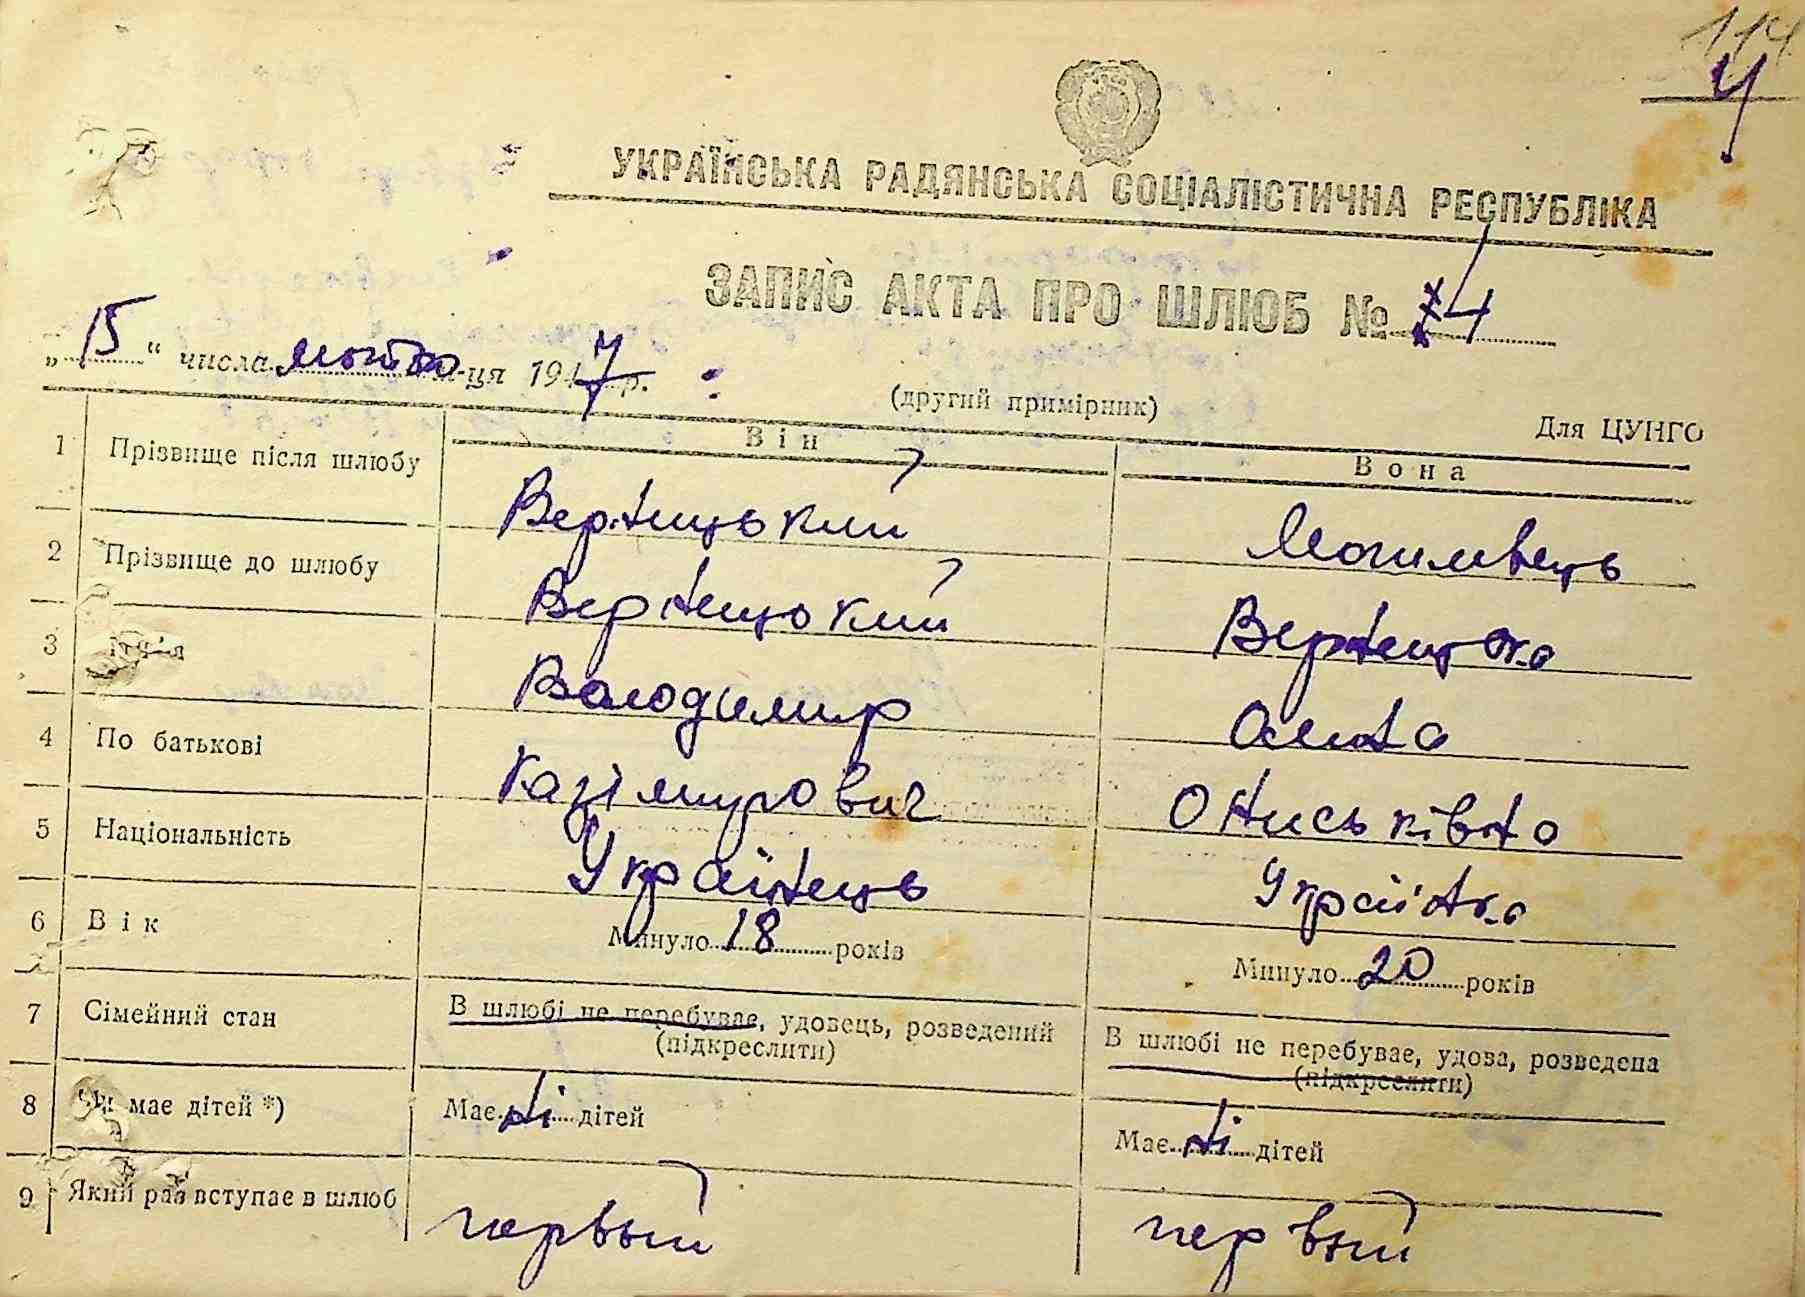 114
4
УКРАЇНСЬКА РАДЯНСЬКА СОЦІАЛІСТИЧНА РЕСПУБЛІКА
ЗАПИС АКТА ПРО ШЛЮБ № 4
„15“ числа лютого м-ця 1947 р.
(другий примірник)
Для ЦУНГО
Він Вона
1 Прізвище після шлюбу Верницький Могилвець
2 Прізвище до шлюбу Верницький Верницька
3 Ім'я Володимир Олена
4 По батькові Казімирович Ониськівна
5 Національність Українець Українка
6 Вік Минуло 18 років Минуло 20 років
7 Сімейний стан В шлюбі не перебуває, удовець, розведений В шлюбі не перебуває, удова, розведена
(підкреслити) (підкреслити)
8 Чи має дітей *) Має ні дітей Має ні дітей
9 Який раз вступає в шлюб первый первый